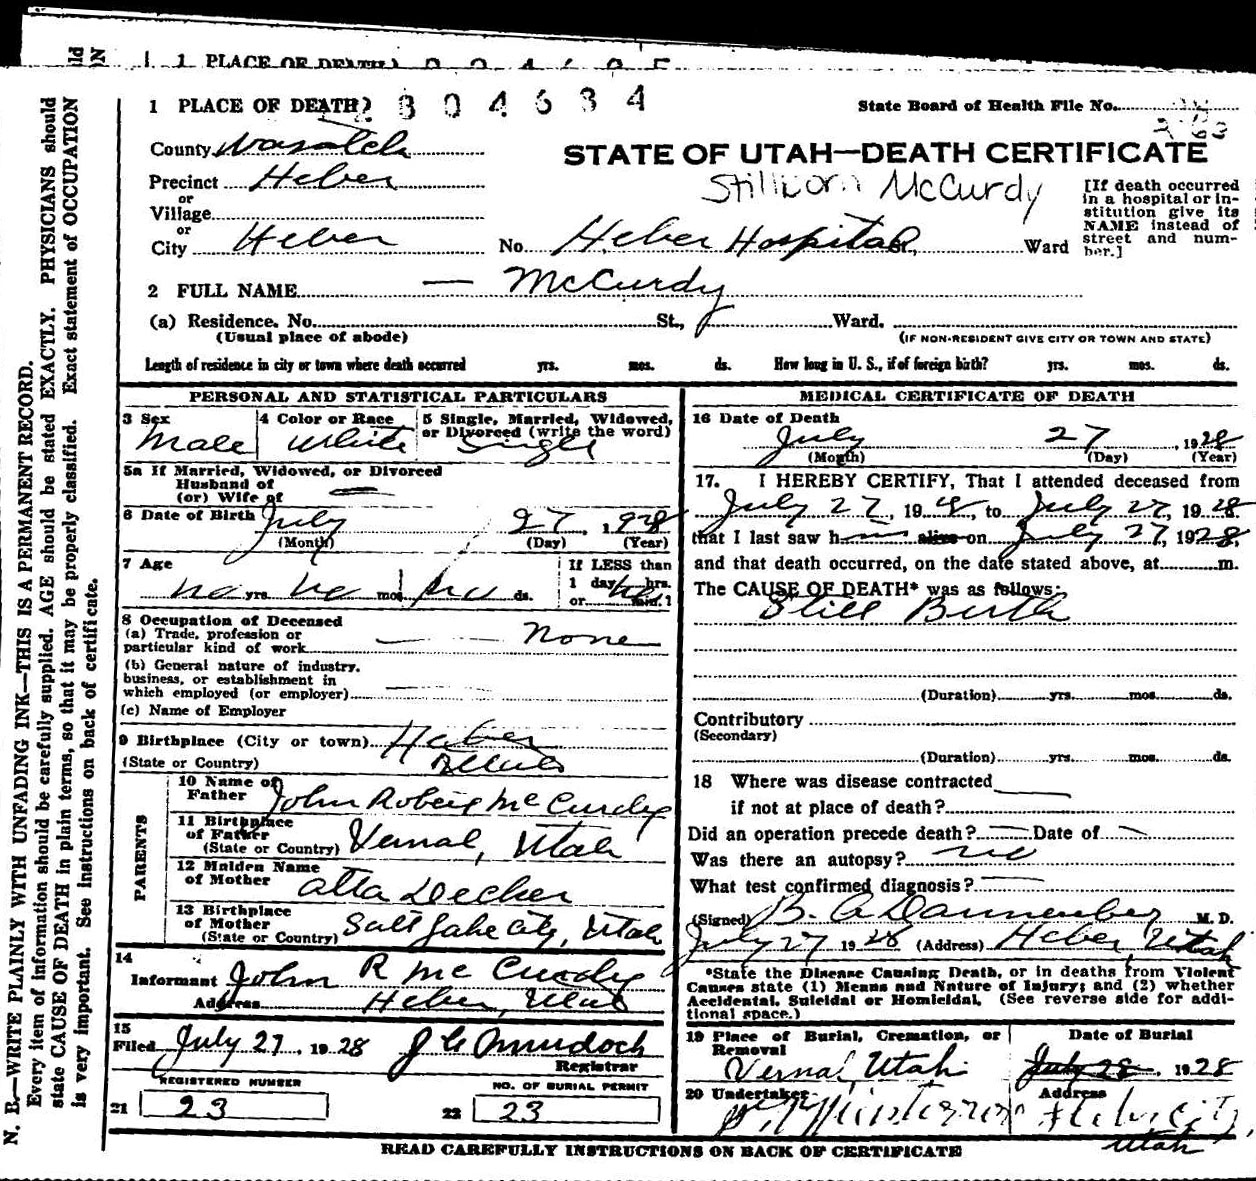 1 PLACE OF DEATH
2304634
State Board of Health File No.
County Wasatch
STATE OF UTAH—DEATH CERTIFICATE
Precinct Heber
Stillborn McCurdy
or
Village
or
City Heber No. Heber Hospital St., Ward
[If death occurred
in a hospital or in-
stitution give its
NAME instead of
street and num-
ber.]
2 FULL NAME — McCurdy
(a) Residence. No. St., Ward.
(Usual place of abode) (IF NON-RESIDENT GIVE CITY OR TOWN AND STATE)
Length of residence in city or town where death occurred yrs. mos. ds. How long in U. S., if of foreign birth? yrs. mos. ds.
PERSONAL AND STATISTICAL PARTICULARS
3 Sex 4 Color or Race 5 Single, Married, Widowed,
or Divorced (write the word)
Male White Single
5a If Married, Widowed, or Divorced
Husband of
(or) Wife of —
6 Date of Birth July 27, 1928
(Month) (Day) (Year)
7 Age If LESS than
1 day, hrs.
no yrs. no mos. no ds. or min.
8 Occupation of Deceased
(a) Trade, profession or
particular kind of work None
(b) General nature of industry,
business, or establishment in
which employed (or employer)
(c) Name of Employer
9 Birthplace (City or town) Heber
(State or Country) Utah
PARENTS
10 Name of
Father John Robert McCurdy
11 Birthplace
of Father
(State or Country) Vernal, Utah
12 Maiden Name
of Mother Atta Decker
13 Birthplace
of Mother
(State or Country) Salt Lake City, Utah
14
Informant John R McCurdy
Address Heber, Utah
15
Filed July 27, 1928 J C Murdoch
Registrar
REGISTERED NUMBER NO. OF BURIAL PERMIT
21 23 22 23
MEDICAL CERTIFICATE OF DEATH
16 Date of Death
July 27, 1928
(Month) (Day) (Year)
17. I HEREBY CERTIFY, That I attended deceased from
July 27, 1928, to July 27, 1928
that I last saw him alive on July 27, 1928,
and that death occurred, on the date stated above, at m.
The CAUSE OF DEATH* was as follows:
Still Birth
(Duration) yrs. mos. ds.
Contributory
(Secondary)
(Duration) yrs. mos. ds.
18 Where was disease contracted
if not at place of death?
Did an operation precede death? — Date of —
Was there an autopsy? no
What test confirmed diagnosis?
(Signed) B. A. Dannenberg M. D.
July 27 1928 (Address) Heber, Utah
*State the Disease Causing Death, or in deaths from Violent
Causes state (1) Means and Nature of Injury; and (2) whether
Accidental, Suicidal or Homicidal. (See reverse side for addi-
tional space.)
19 Place of Burial, Cremation, or
Removal Date of Burial
Vernal, Utah July 28, 1928
20 Undertaker Address
Heber City,
Utah
READ CAREFULLY INSTRUCTIONS ON BACK OF CERTIFICATE
N. B.—WRITE PLAINLY WITH UNFADING INK—THIS IS A PERMANENT RECORD.
Every item of information should be carefully supplied. AGE should be stated EXACTLY. PHYSICIANS should
state CAUSE OF DEATH in plain terms, so that it may be properly classified. Exact statement of OCCUPATION
is very important. See instructions on back of certificate.